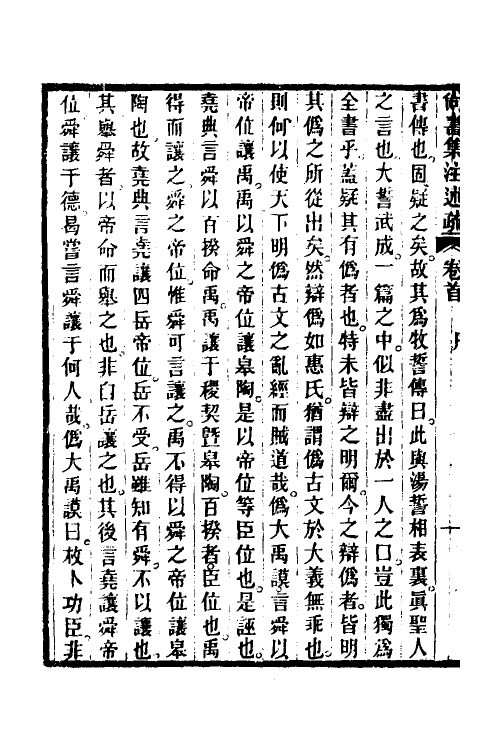 尚書集注述疏 卷首 序 十
書傳也固疑之矣故其爲牧誓傳曰此與湯誓相表裏眞聖人
之言也大誓武成一篇之中似非盡出於一人之口豈此獨爲
全書乎蓋疑其有僞者也特未皆辯之明爾今之辯僞者皆明
其僞之所從出矣然辯僞如惠氏猶謂僞古文於大義無乖也
則何以使天下明僞古文之亂經而賊道哉僞大禹謨言舜以
帝位讓禹禹以舜之帝位讓皋陶是以帝位等臣位也是誣也
堯典言舜以百揆命禹禹讓于稷契曁皋陶百揆者臣位也禹
得而讓之舜之帝位惟舜可言讓之禹不得以舜之帝位讓皋
陶也故堯典言堯讓四岳帝位岳不受岳雖知有舜不以讓也
其舉舜者以帝命而舉之也非自岳讓之也其後言堯讓舜帝
位舜讓于德曷嘗言舜讓于何人哉僞大禹謨曰枚卜功臣非